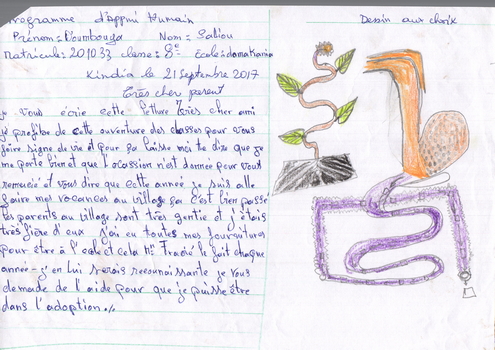 Programme d'Appui Humain
Prénom = Doumbouya Nom = Saliou
Matricule: 201033 classe: 8e Ecole: damakania
Kindia le 21 Septembre 2017
Très cher parent
je vous écrie cette lettre très cher ami
je profite de cette ouverture des classes pour vous
faire signe de vie et pour ça laisse moi te dire que je
me porte bien et que l'ocassion n'est donnée pour vous
remercié et vous dire que cette année je suis allé
faire mes vacances au village ça c'est bien passé
les parents au village sont très gentie et j'étais
très fière d'eux j'ai eu toutes mes fournitures
pour être à l'ecole et cela Mr le fait chaque
année - j'en lui serais reconnaissante je vous
demade de l'aide pour que je puisse être
dans l'adoption.
Dessin au choix